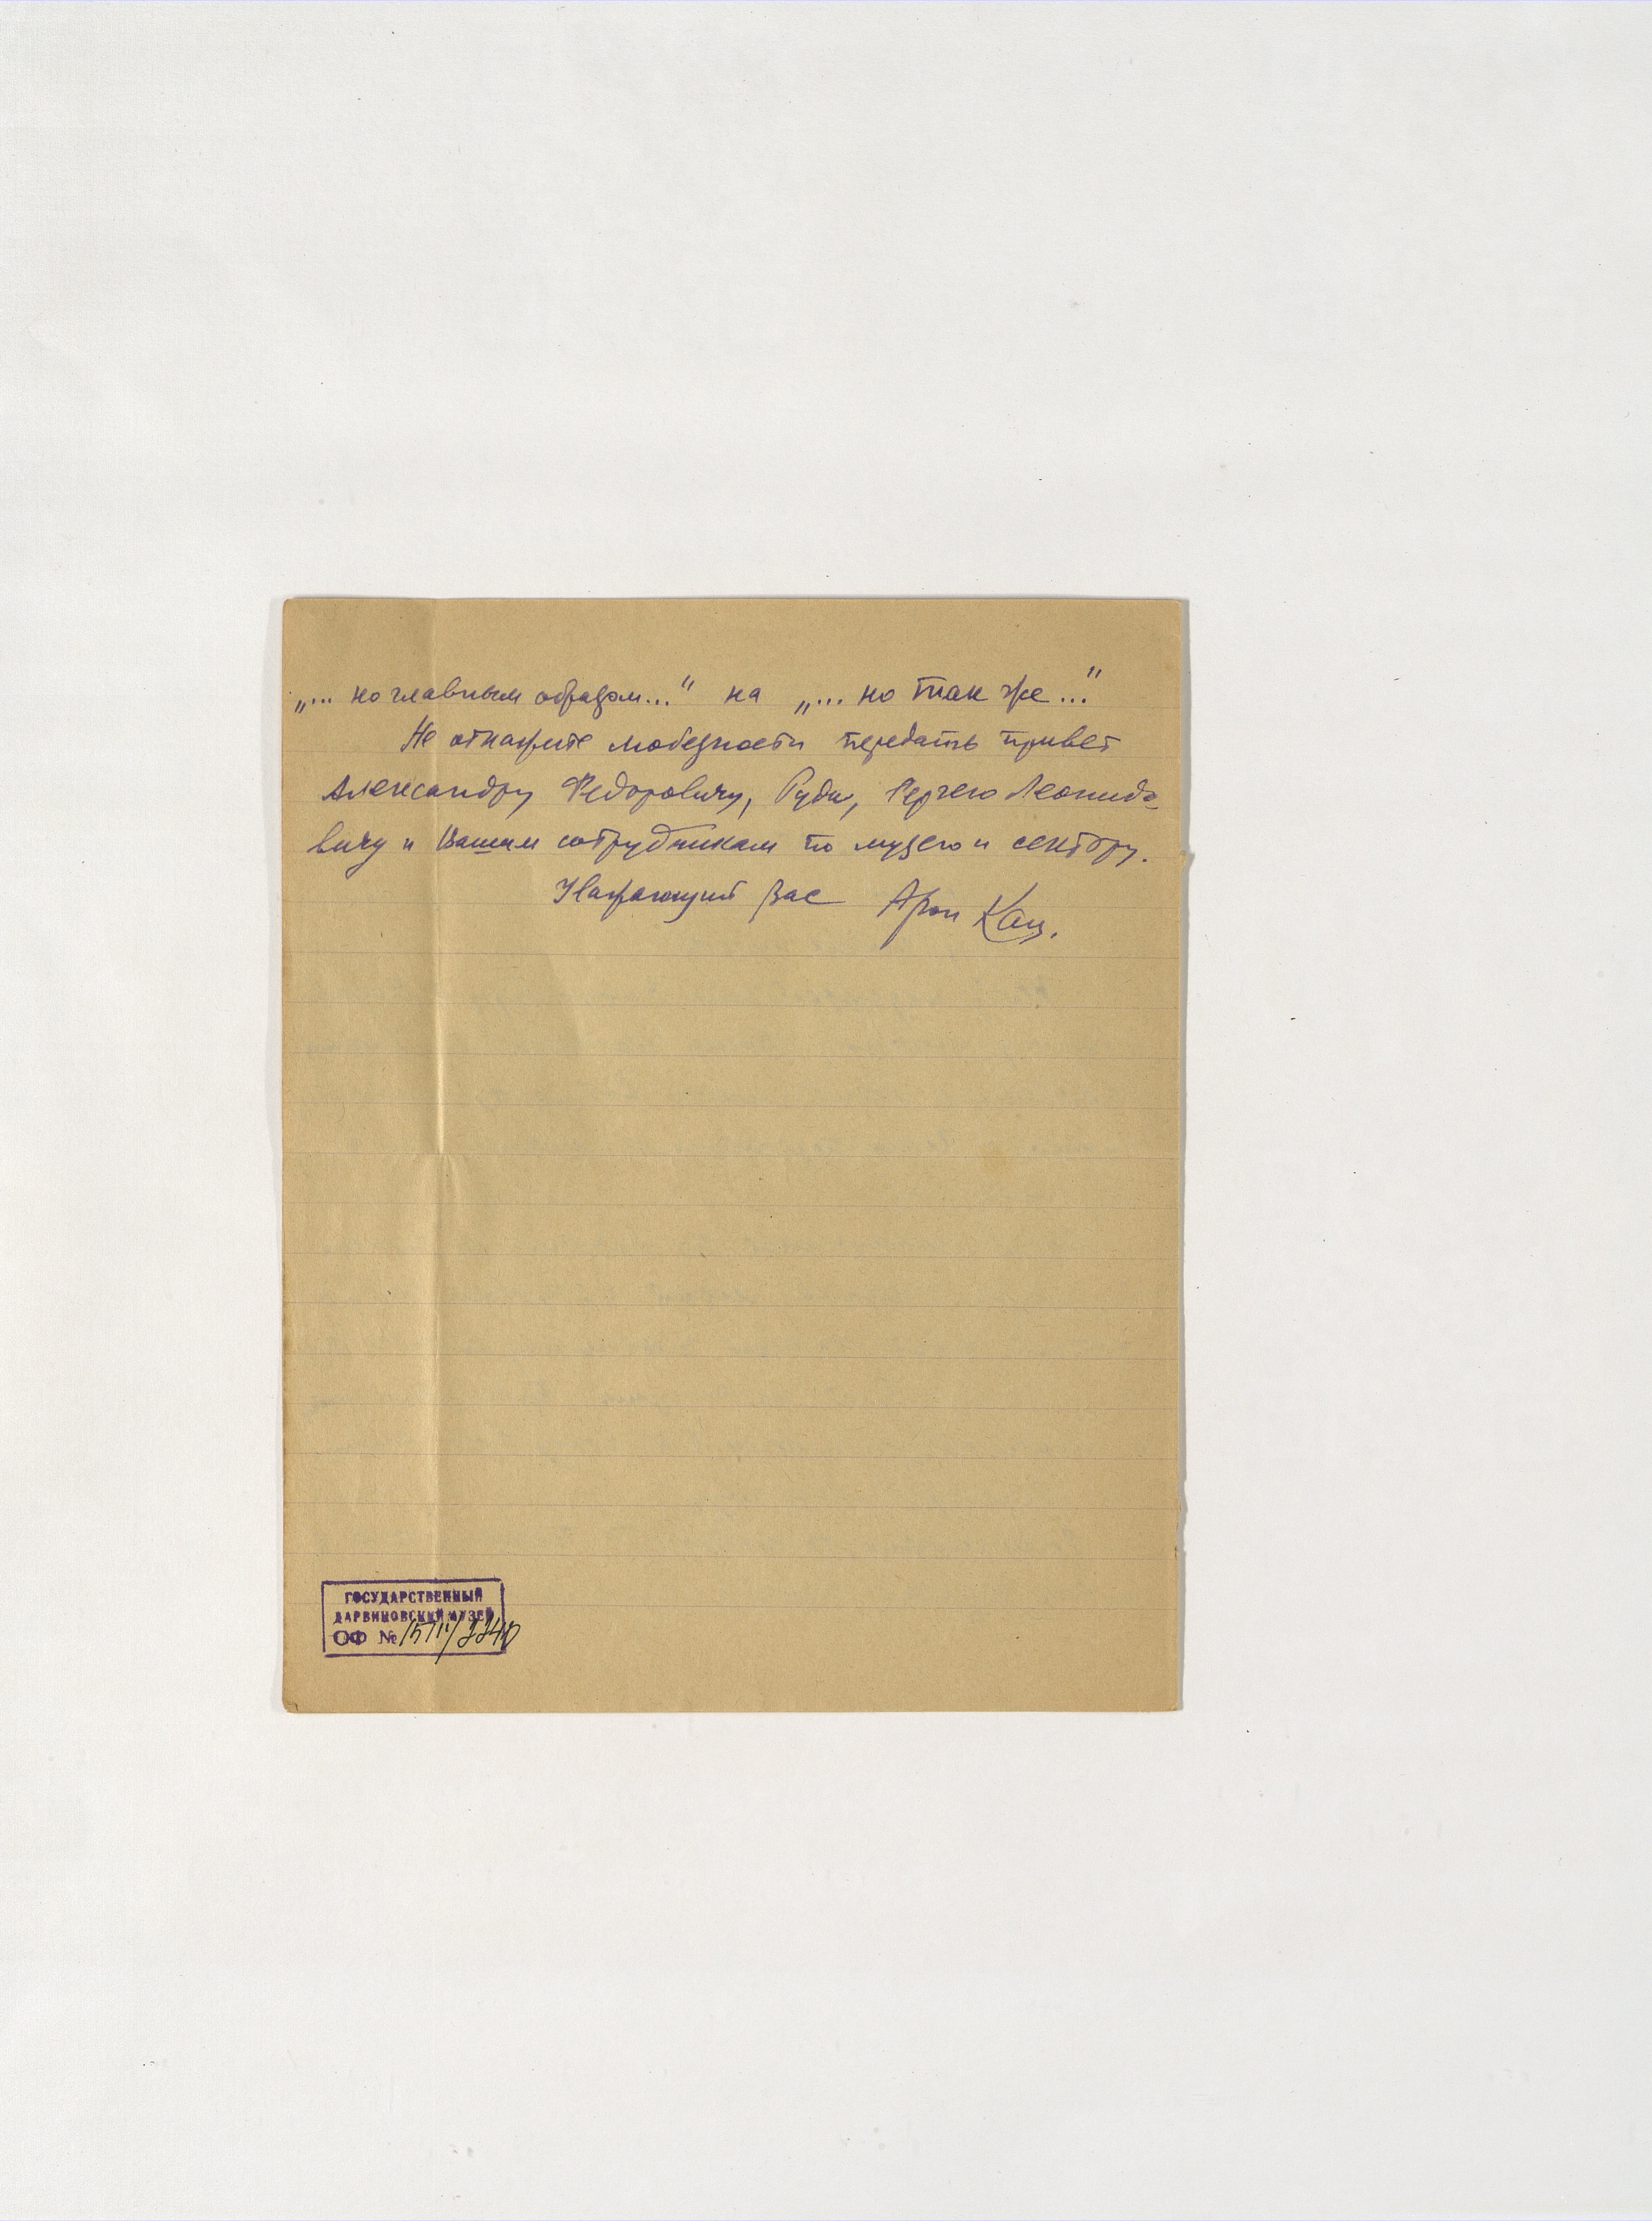 „... но главным образом..." на „... но так же..."
Не откажите любезности передать привет
Александру Федоровичу, Руди, Сергею Леонидо
вичу и Вашим сотрудникам по музею и сектору.
Уважающий Вас Арон Кац.
ГОСУДАРСТВЕННЫЙ
ДАРВИНОВСКИЙ МУЗЕЙ
ОФ №